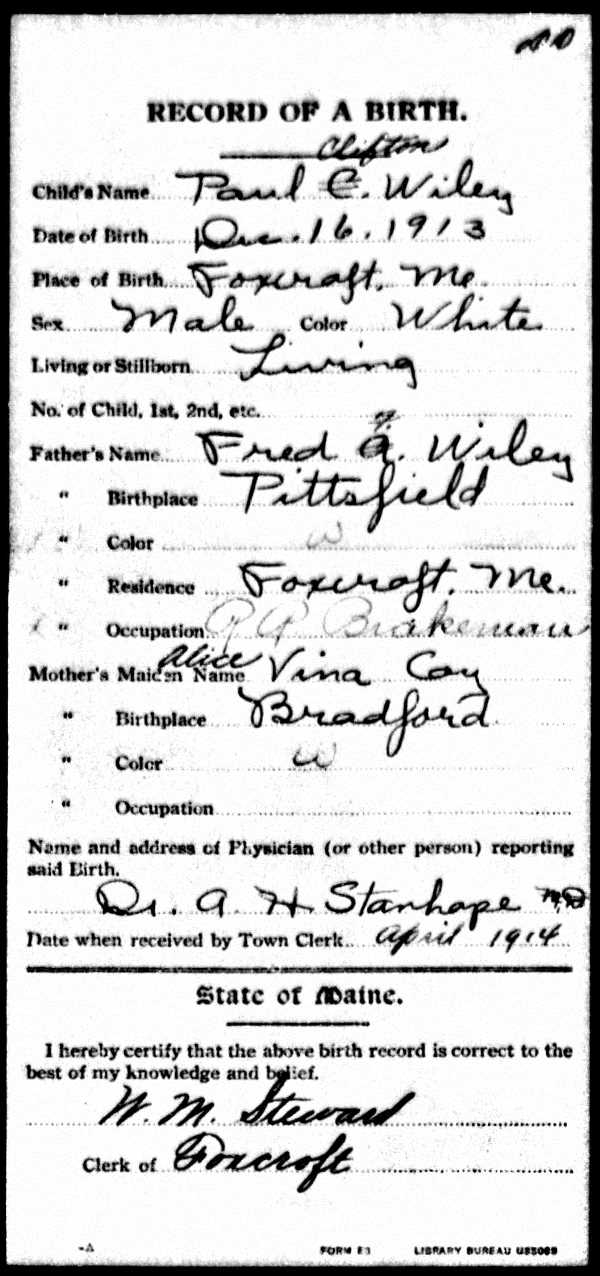 RECORD OF A BIRTH.
Clifton
Child's Name Paul C. Wiley
Date of Birth Dec. 16. 1913
Place of Birth Foxcraft. Me.
Sex Male Color White
Living or Stillborn Living
No. of Child, 1st, 2nd, etc.
Father's Name Fred A. Wiley
" Birthplace Pittsfield
" Color W
" Residence Foxcraft. Me.
" Occupation R R Brakeman
Alice
Mother's Maiden Name Vina Coy
" Birthplace Bradford
" Color W
" Occupation
Name and address of Physician (or other person) reporting
said Birth.
Dr. A. H. Stanhope M.D
Date when received by Town Clerk April 1914
State of Maine.
I hereby certify that the above birth record is correct to the
best of my knowledge and belief.
W. M. Steward
Clerk of Foxcroft
FORM E3 LIBRARY BUREAU